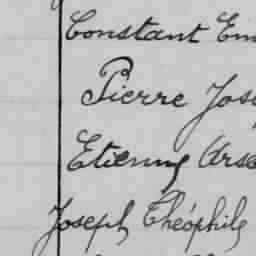 Constant Em
Pierre Jose
Etienne Arse
Joseph Théophile